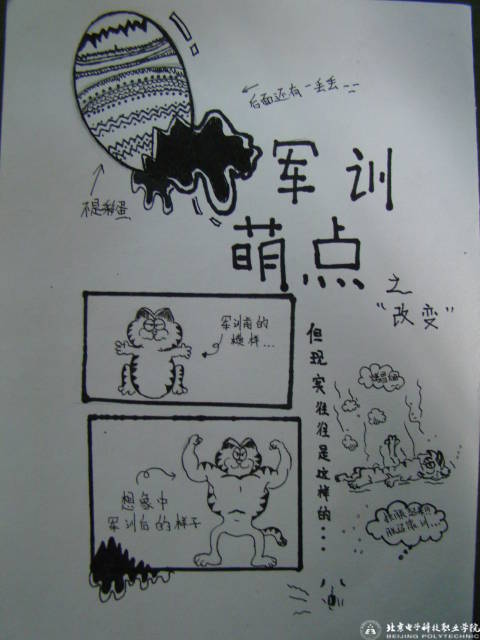 后面还有一丢丢
不是彩蛋
军训
萌点
之
"改变"
军训前的
模样...
但现实往往是这样的...
想象中
军训后的样子
北京电子科技职业学院
BEIJING POLYTECHNIC